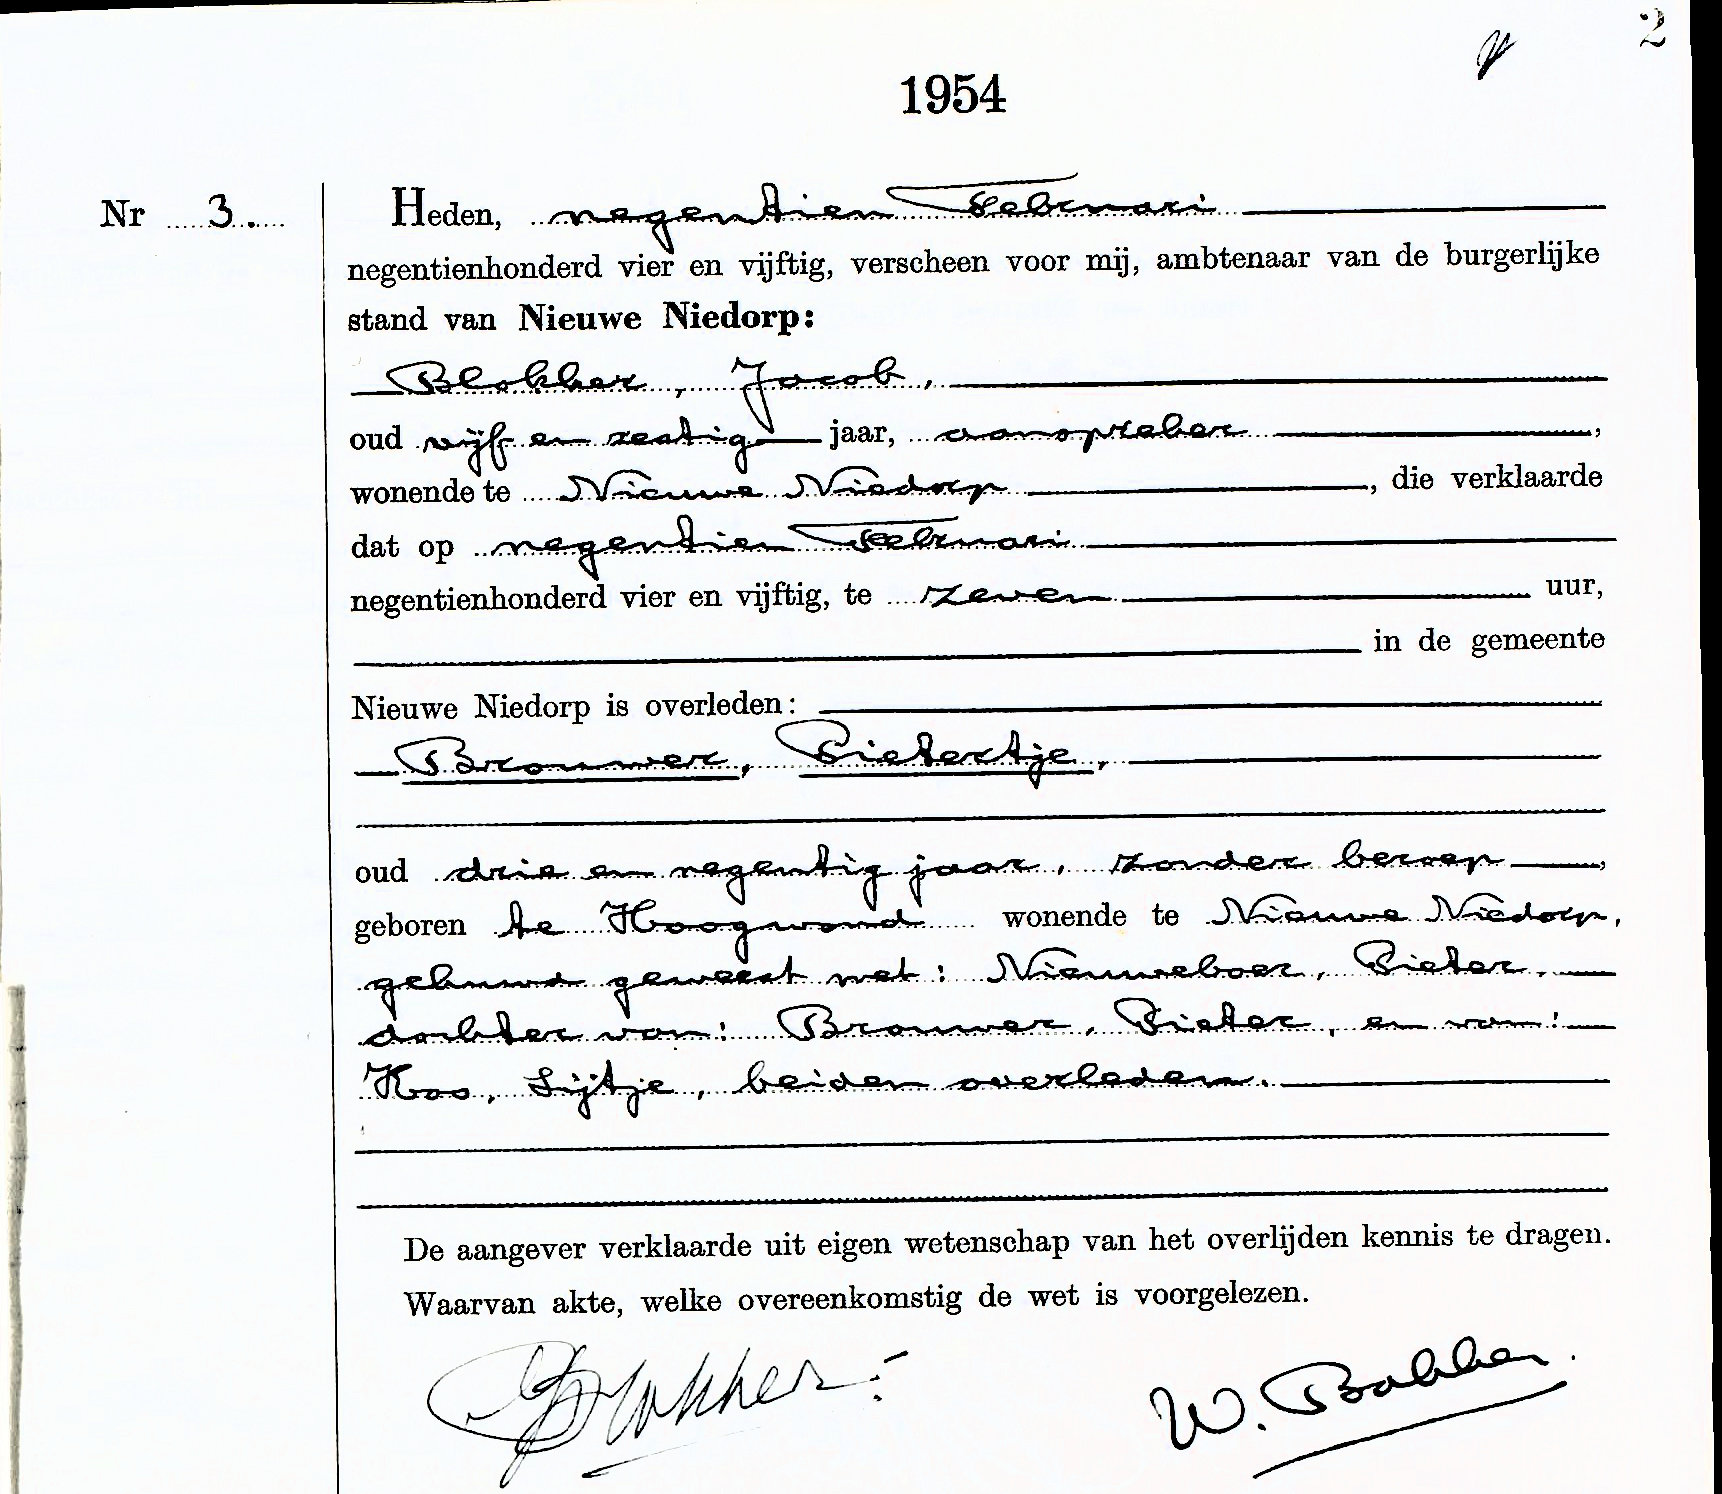 2
1954
Nr 3.
Heden, negentien Februari
negentienhonderd vier en vijftig, verscheen voor mij, ambtenaar van de burgerlijke
stand van Nieuwe Niedorp:
Blokker, Jacob,
oud vijf en zestig jaar, aanspreker,
wonende te Nieuwe Niedorp, die verklaarde
dat op negentien Februari
negentienhonderd vier en vijftig, te zeven uur,
in de gemeente
Nieuwe Niedorp is overleden:
Brouwer, Pietertje,
oud drie en negentig jaar, zonder beroep,
geboren te Hoogwoud wonende te Nieuwe Niedorp,
gehuwd geweest met: Nieuweboer, Pieter,
dochter van: Brouwer, Pieter, en van:
Koo, Sijtje, beiden overleden.
De aangever verklaarde uit eigen wetenschap van het overlijden kennis te dragen.
Waarvan akte, welke overeenkomstig de wet is voorgelezen.
JBlokker
W. Bakker.